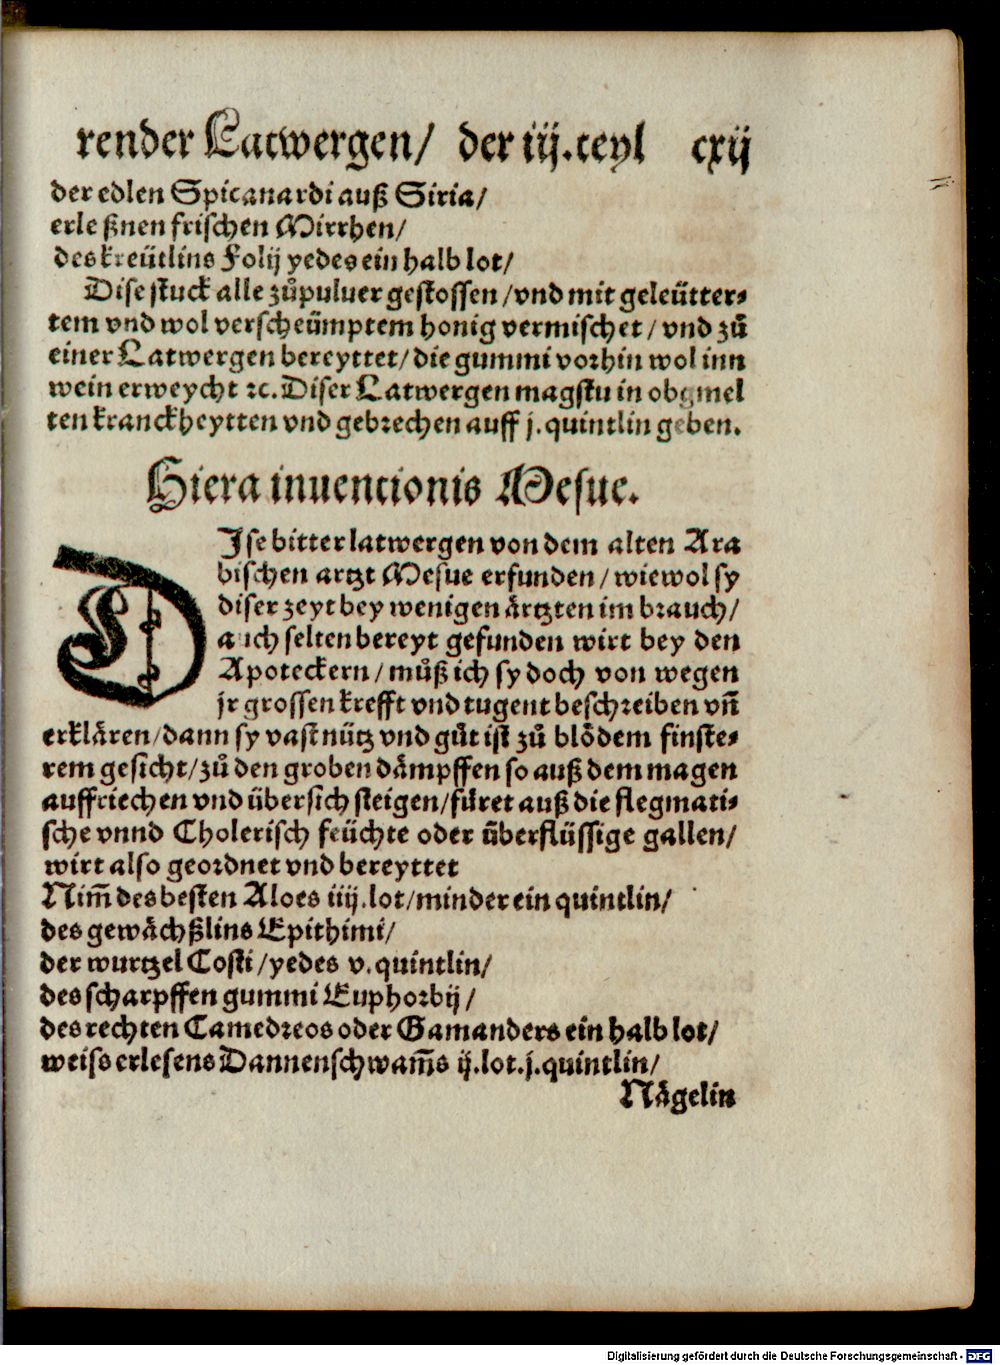 render Latwergen/ der iij.teyl cxij
der edlen Spicanardi auß Siria/
erleßnen frischen Mirrhen/
des kreütlins Folij yedes ein halb lot/
Dise stuck alle zůpuluer gestossen/vnd mit geleütter⸗
tem vnd wol verscheümptem honig vermischet/vnd zů
einer Latwergen bereyttet/die gummi vorhin wol inn
wein erweycht ꝛc. Diser Latwergen magstu in obgmel
ten kranckheytten vnd gebrechen auff j.quintlin geben.
Hiera inuentionis Mesue.
DIse bitter latwergen von dem alten Ara
bischen artzt Mesue erfunden/wiewol sy
diser zeyt bey wenigen ärtzten im brauch/
auch selten bereyt gefunden wirt bey den
Apoteckern/můß ich sy doch von wegen
jr grossen krefft vnd tugent beschreiben vn̄
erklären/dann sy vast nütz vnd gůt ist zů blödem finste⸗
rem gesicht/zů den groben dämpffen so auß dem magen
auffriechen vnd übersich steigen/füret auß die flegmati⸗
sche vnnd Cholerisch feüchte oder überflüssige gallen/
wirt also geordnet vnd bereyttet
Nim̄ des besten Aloes iiij.lot/minder ein quintlin/
des gewächßlins Epithimi/
der wurtzel Costi/yedes v.quintlin/
des scharpffen gummi Euphorbij/
des rechten Camedreos oder Gamanders ein halb lot/
weiss erlesens Dannenschwam̄s ij.lot.j.quintlin/
Nägelin
Digitalisierung gefördert durch die Deutsche Forschungsgemeinschaft - DFG